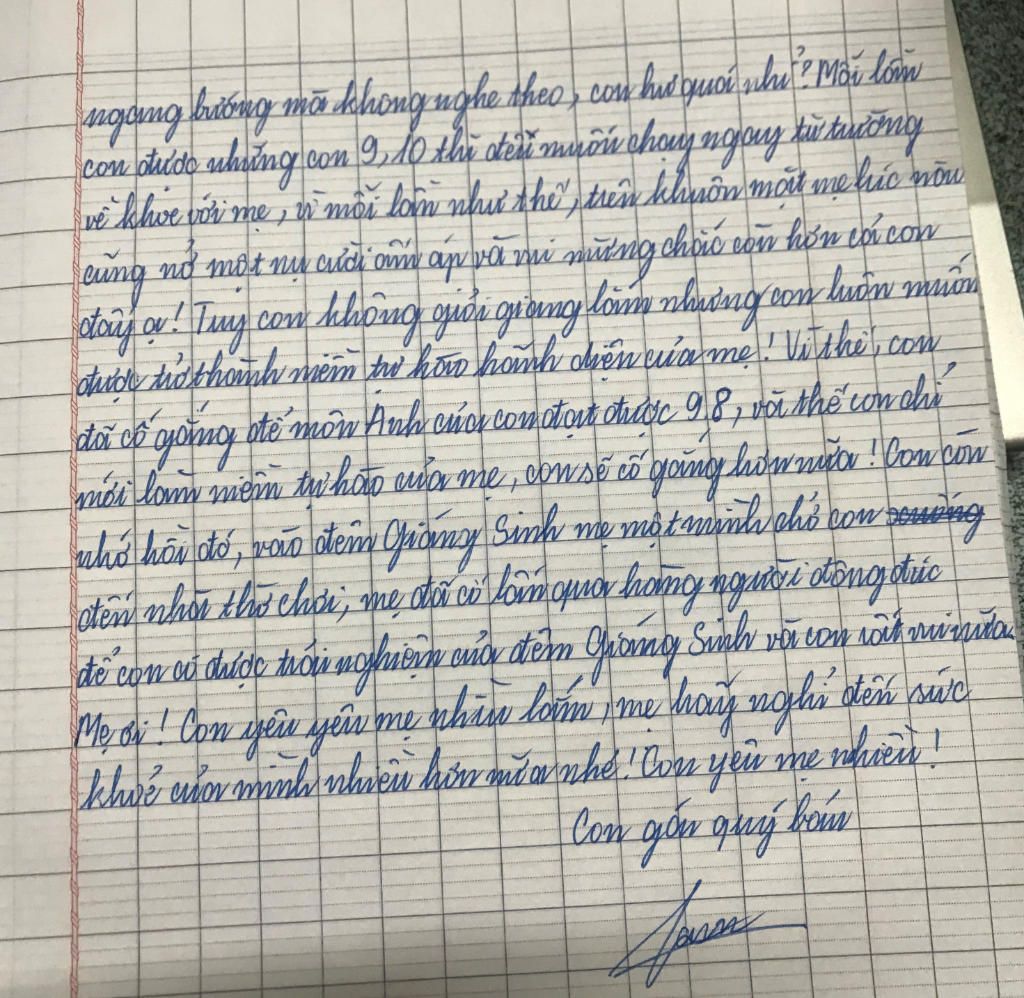 ngang bướng mà không nghe theo, con hư quá nhỉ? Mỗi lần
con được những con 9, 10 thì đều muốn chạy ngay từ trường
về khoe với mẹ, vì mỗi lần như thế, trên khuôn mặt mẹ lúc nào
cũng nở một nụ cười ấm áp và vui mừng chắc còn hơn cả con
đấy ạ! Tuy con không giỏi giang lắm nhưng con luôn muốn
được trở thành niềm tự hào hãnh diện của mẹ! Vì thế, con
đã cố gắng để môn Anh của con đạt được 9,8, và thế con chỉ
mới làm niềm tự hào của mẹ, con sẽ cố gắng hơn nữa! Con còn
nhớ hồi đó, vào đêm Giáng Sinh mẹ một mình chở con xuống
đến nhà thờ chơi, mẹ đã cố lấn qua hàng người đông đúc
để con có được trải nghiệm của đêm Giáng Sinh và con rất vui nữa.
Mẹ ơi! Con yêu yêu mẹ nhiều lắm, mẹ hãy nghỉ đến sức
khoẻ của mình nhiều hơn nữa nhé! Con yêu mẹ nhiều!
Con gán quý báu